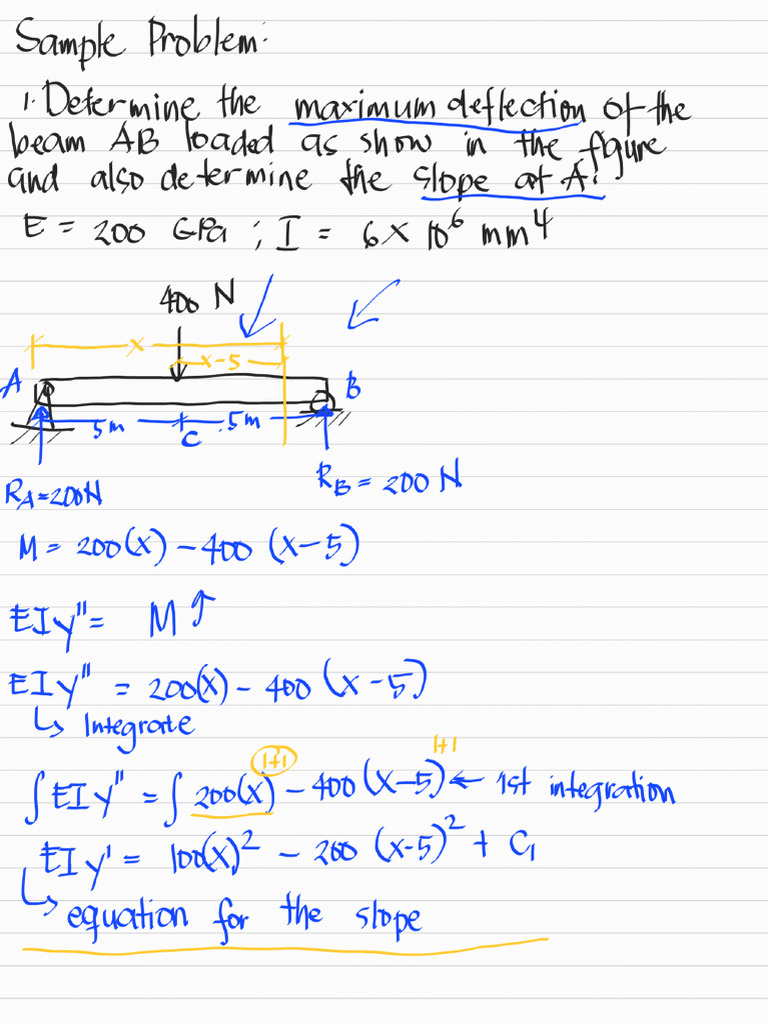 Sample Problem:
1. Determine the maximum deflection of the
beam AB loaded as show in the figure
and also determine the slope at A.
E = 200 GPa ; I = 6 x 10^6 mm^4
400 N
x
x-5
A
B
5m
C
5m
RA=200N
RB = 200 N
M = 200(x) - 400 (x-5)
EIy" = M
EIy" = 200(x) - 400 (x-5)
↳ Integrate
1+1
1+1
∫EIy" = ∫200(x) - 400(x-5) ← 1st integration
EIy' = 100(x)^2 - 200 (x-5)^2 + C1
↳ equation for the slope